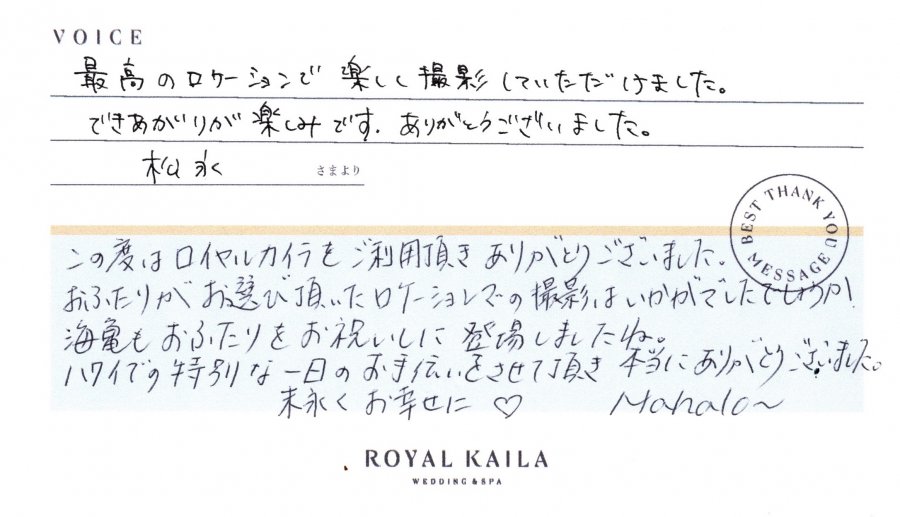 VOICE
最高のロケーションで 楽しく撮影していただけました。
できあがりが楽しみです. ありがとうございました。
松永 さまより
BEST THANK YOU MESSAGE
この度はロイヤルカイラをご利用頂きありがとうございました.
おふたりがお選び頂いたロケーションでの撮影はいかがでしたでしょうか!
海亀もおふたりをお祝いしに登場しましたね。
ハワイでの特別な一日のお手伝いをさせて頂き 本当にありがとうございました。
末永くお幸せに ♡ Mahalo~
ROYAL KAILA
WEDDING & SPA